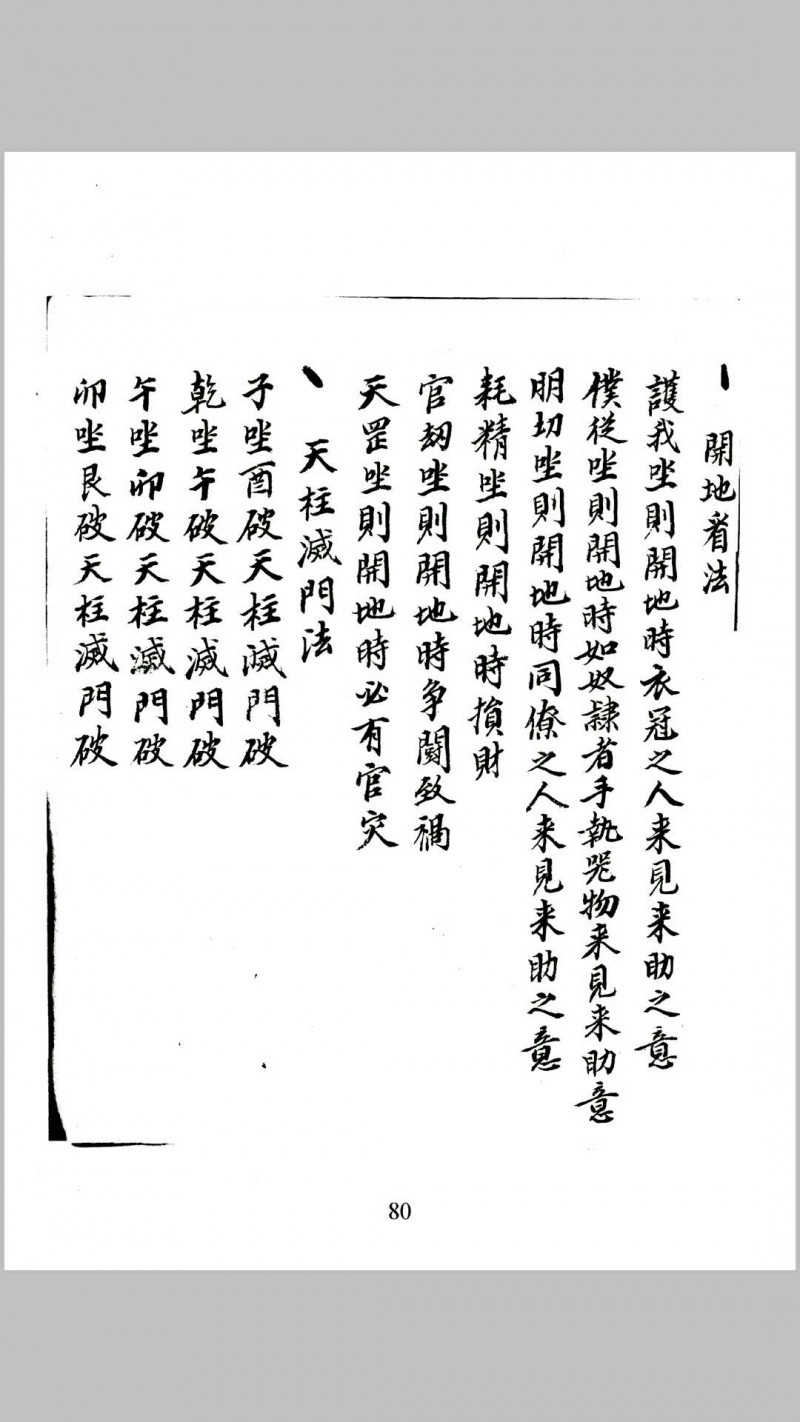 一 開地看法
護我坐則開地時衣冠之人来見来助之意
僕從坐則開地時如奴隷者手執器物来見来助意
明切坐則開地時同僚之人来見来助之意
耗精坐則開地時損財
官刼坐則開地時争鬪致禍
天罡坐則開地時必有官灾
一 天柱滅門法
子坐酉破天柱滅門破
乾坐午破天柱滅門破
午坐卯破天柱滅門破
卯坐艮破天柱滅門破
80